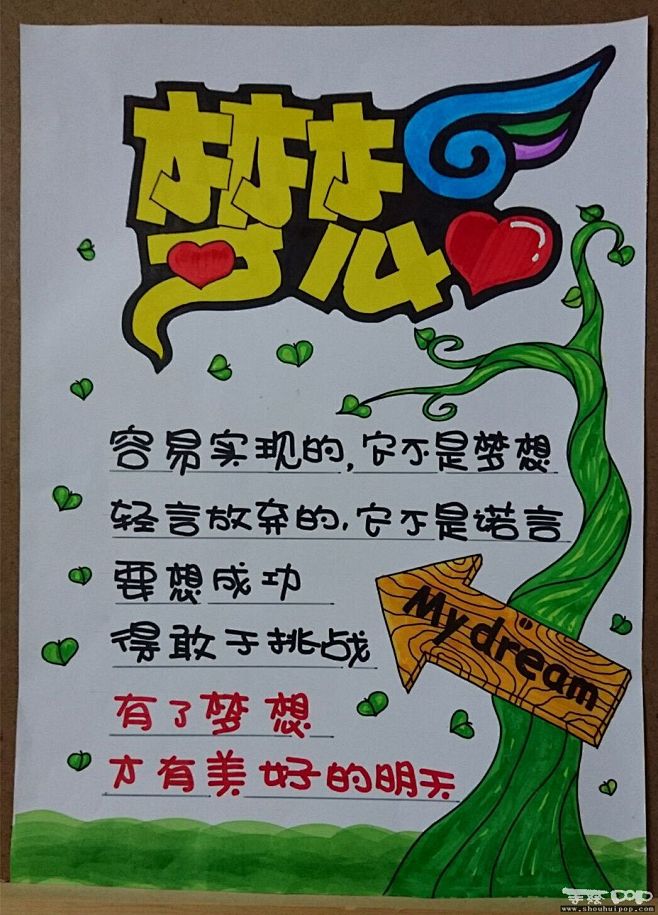 梦想
容易实现的,它不是梦想
轻言放弃的,它不是诺言
要想成功
得敢于挑战
My dream
有了梦想
才有美好的明天
手绘POP
www.shouhuipop.com